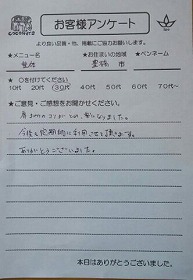 お客様アンケート
より良い品質・他、指導にご協力お願いします。
★メニュー名 ★お住まいの地域 ★ペンネーム
整体 豊橋 市
★ ○を付けてください
10代 20代 30代 40代 50代 60代 70代～
★ご意見・ご感想をお聞かせください。
肩まわりのコリがとれ、楽になりました。
今後も定期的に利用させて頂きます。
ありがとうございました。
本日はありがとうございました。